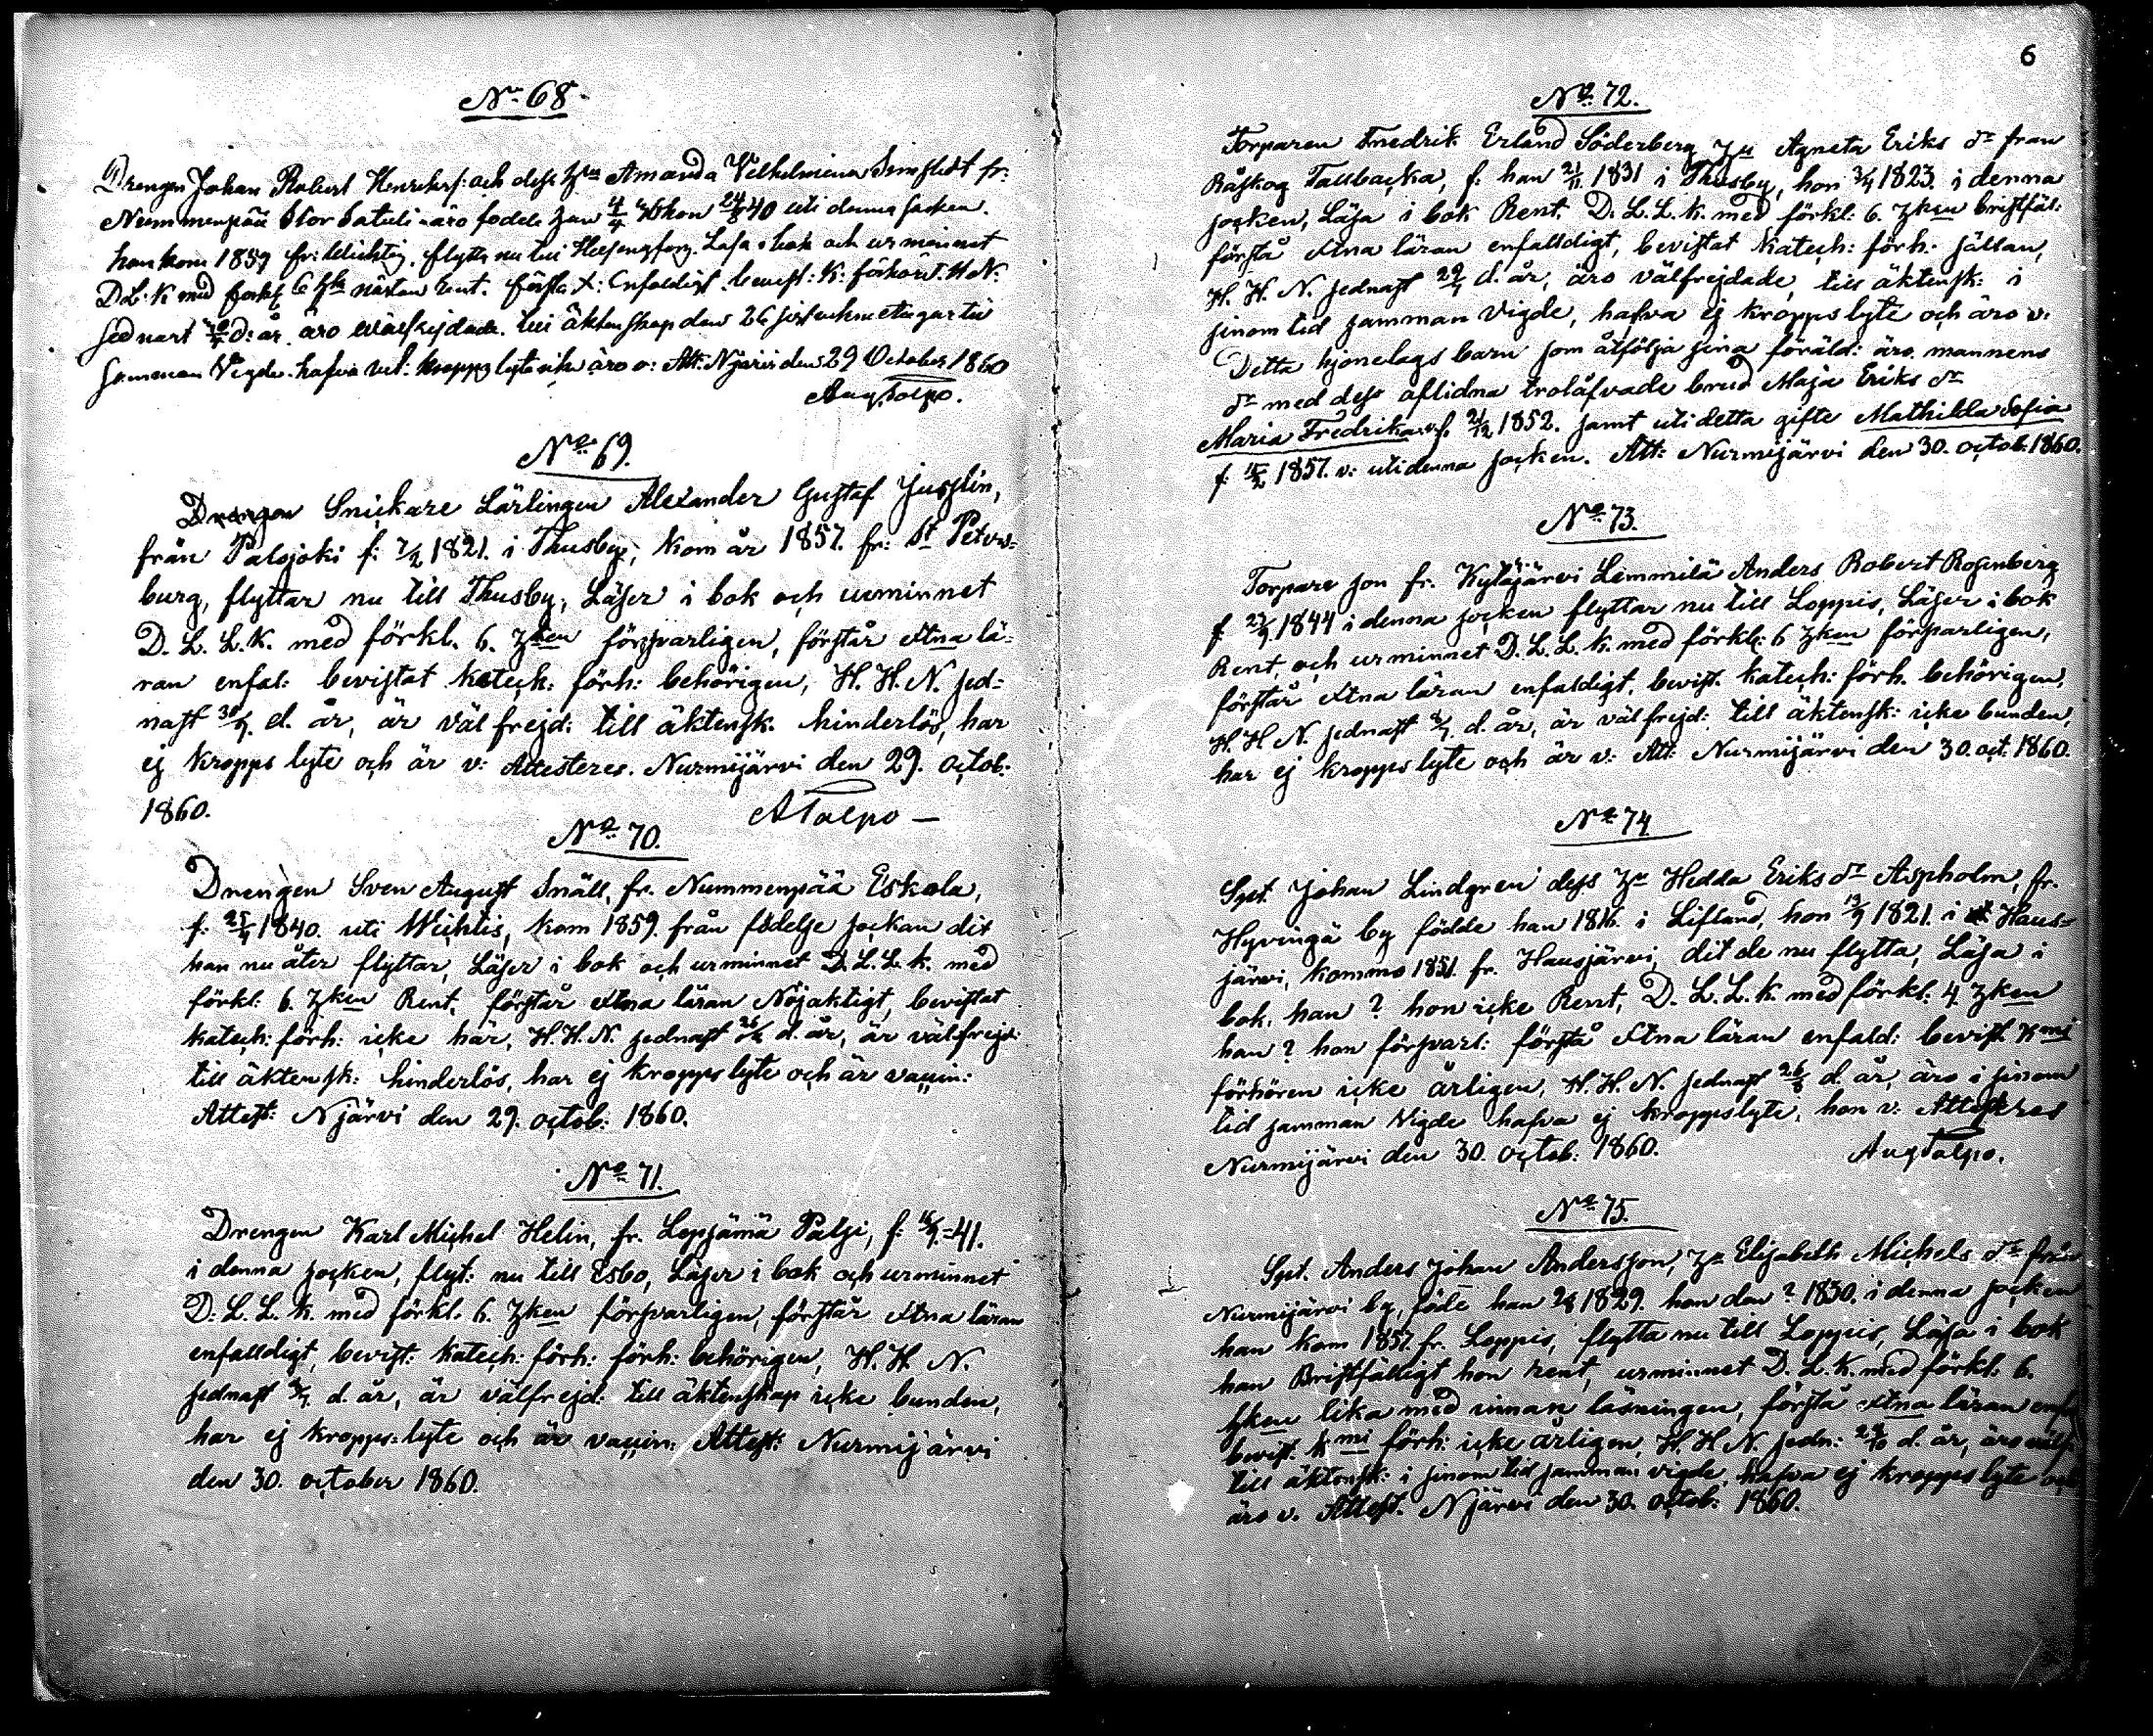 No 68
Drengen Johan Robert Henriksf: och dess hu Amanda Vilhelmina fr:
Nummenpää Stor äro födde han 4/4 hon 24/8 40 uti denna socken.
han kom 1859 fr: Wichtis, flytta nu till Helsingfors. Läsa i bok och urminnet
D L. K med förkl 6 hk nästan Rent. förstå X: Enfaldigt. bevist: K: förhör. H N.
sednast d: år, äro välfrejdade. till äktenskap den 26
samman Vigde. hafva kropps lyte och äro v: Att: Njärvi den 29 October 1860
Aug. Talpo.
No 69.
Drengen Snickare Lärlingen Alexander Gustaf Jusslin,
från Palojoki f: 7/2 1821. i Thusby, kom år 1857. fr: St Peters-
burg, flyttar nu till Thusby, Läser i bok och urminnet
D. L. L. K. med förkl. 6. hken försvarligen, förstår Xtna lä-
ran enfal: bevistat katech: förh: behörigen, H. H. N. sed-
nast 30/9. d. år, är väl frejd: till äktensk. hinderlös, har
ej kropps lyte och är v: Attesteres. Nurmijärvi den 29. octob:
1860.
A Talpo —
No 70.
Drengen Sven August Snäll, fr. Nummenpää Eskola,
f: 25/4 1840. uti Wichtis, kom 1859. från födelse sockan dit
han nu åter flyttar, Läser i bok och urminnet D. L. L. K. med
förkl: 6. hken Rent, förstår Xtna läran Nöjaktigt, bevistat
katech: förh: icke här, H. H. N. sednast d. år, är välfrejd:
till äktensk: hinderlös, har ej kropps lyte och är vaccin:
Attest: Njärvi den 29. octob: 1860.
No 71.
Drengen Karl Michel Helin, fr. Lepsämä Palsi, f: 41.
i denna socken, flyt: nu till Esbo, Läser i bok och urminnet
D. L. L. K. med förkl. 6. hken försvarligen, förstår Xtna läran
enfalldigt, bevist: katech: förh: förh: behörigen, H. H. N.
sednast d. år, är välfrejd: till äktenskap icke bunden,
har ej kropps-lyte och är vaccin: Attest: Nurmijärvi
den 30. october 1860.
6
No 72.
Torparen Fredrik Erland Söderberg hu Agneta Eriks dr från
Råskog Tallbacka, f: han 21/11 1831 i Thusby, hon 3/4 1823. i denna
socken, Läsa i bok Rent. D. L. L. K. med förkl: 6. hken bristfäl:
förstå Xtna läran enfalldigt, bevistat Katech: förh: sällan,
H. H. N. sednast 29/7 d. år, äro välfrejdade, till äktensk: i
sinom tid samman Vigde, hafva ej kropps lyte och äro v:
Detta hjonelags barn som åtfölja sina föräld: äro mannens
dr med dess aflidna trolåfvade brud Maja Eriks dr
Maria Fredrika f. 21/12 1852. samt uti detta gifte Mathilda Sofia
f: 15/2 1857. v: uti denna socken. Att: Nurmijärvi den 30. octob: 1860.
No 73.
Torpare son fr. Kyläjärvi Lemmilä Anders Robert Rosenberg
f. 1844 i denna socken flyttar nu till Loppis, Läser i bok
Rent, och urminnet D. L. L. K. med förkl: 6 hken försvarligen,
förstår Xtna läran enfaldigt, bevist. katech: förh. behörigen,
H. H. N. sednast d. år, är välfrejd: till äktensk: icke bunden,
har ej kropps lyte och är v: Att: Nurmijärvi den 30. oct. 1860.
No 74.
Spt. Johan Lindgren dess hu Hedda Eriks dr Aspholm, fr.
Hyvingä by födde han 1816. i Lifland, hon 19/9 1821. i Haus-
järvi, kommo 1851. fr. Hausjärvi, dit de nu flytta, Läsa i
bok, han ? hon icke Rent, D. L. L. K. med förkl: 4. hken
han ? hon försvarl: förstå Xtna läran enfald: bevist. kmi
förhören icke årligen, H. H. N. sednast 26/8 d. år, äro i sinom
tid samman Vigde hafva ej kroppslyte, hon v: Attesteres
Nurmijärvi den 30. octob: 1860.
Aug Talpo.
No 75.
Spt. Anders Johan Andersson, hu Elisabeth Michels dr från
Nurmijärvi by, föde han 1829. hon den ? 1830. i denna socken
han kom 1857. fr. Loppis, flytta nu till Loppis, Läsa i bok
han Bristfälligt hon rent, urminnet D. L. K. med förkl: 6.
hken lika med innan läsningen, förstå Xtna läran enf
bevist. kmi förh: icke årligen, H. H. N. sedn: d. år, äro välf:
till äktensk: i sinom tid samman vigde, hafva ej kropps lyte och
äro v. Attest. Njärvi den 30. octob: 1860.